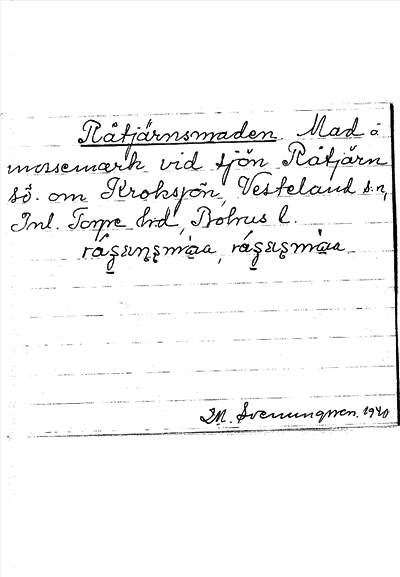 Råtjärnsmaden Mad å
mossemark vid sjön Råtjärn
sö. om Kroksjön, Vesteland s:n,
Inl. Torpe hrd, Bohus l.
M. Svenungsson. 1940